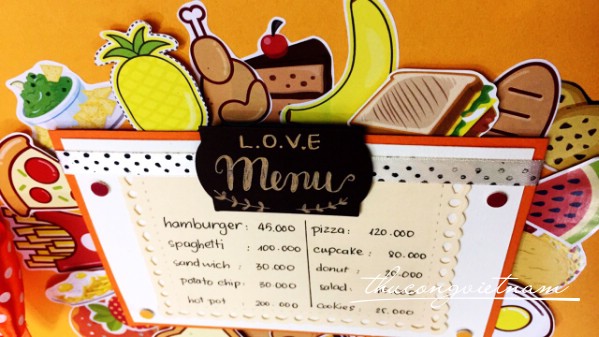 L.O.V.E
Menu
hamburger : 45.000
spaghetti : 100.000
sandwich : 30.000
potato chip : 30.000
hot pot : 200.000
pizza : 120.000
cupcake : 80.000
donut :
salad
cookies :
thucongvietnam